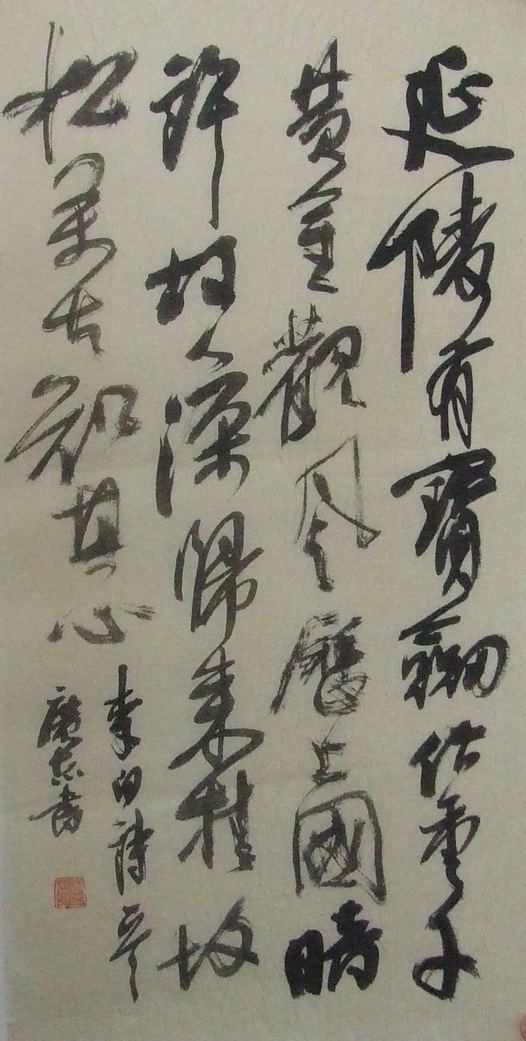 延陵有寶劒价重千
黄金觀風歷上國暗
許故人深歸來挂坟
松萬古知其心
李白詩
書